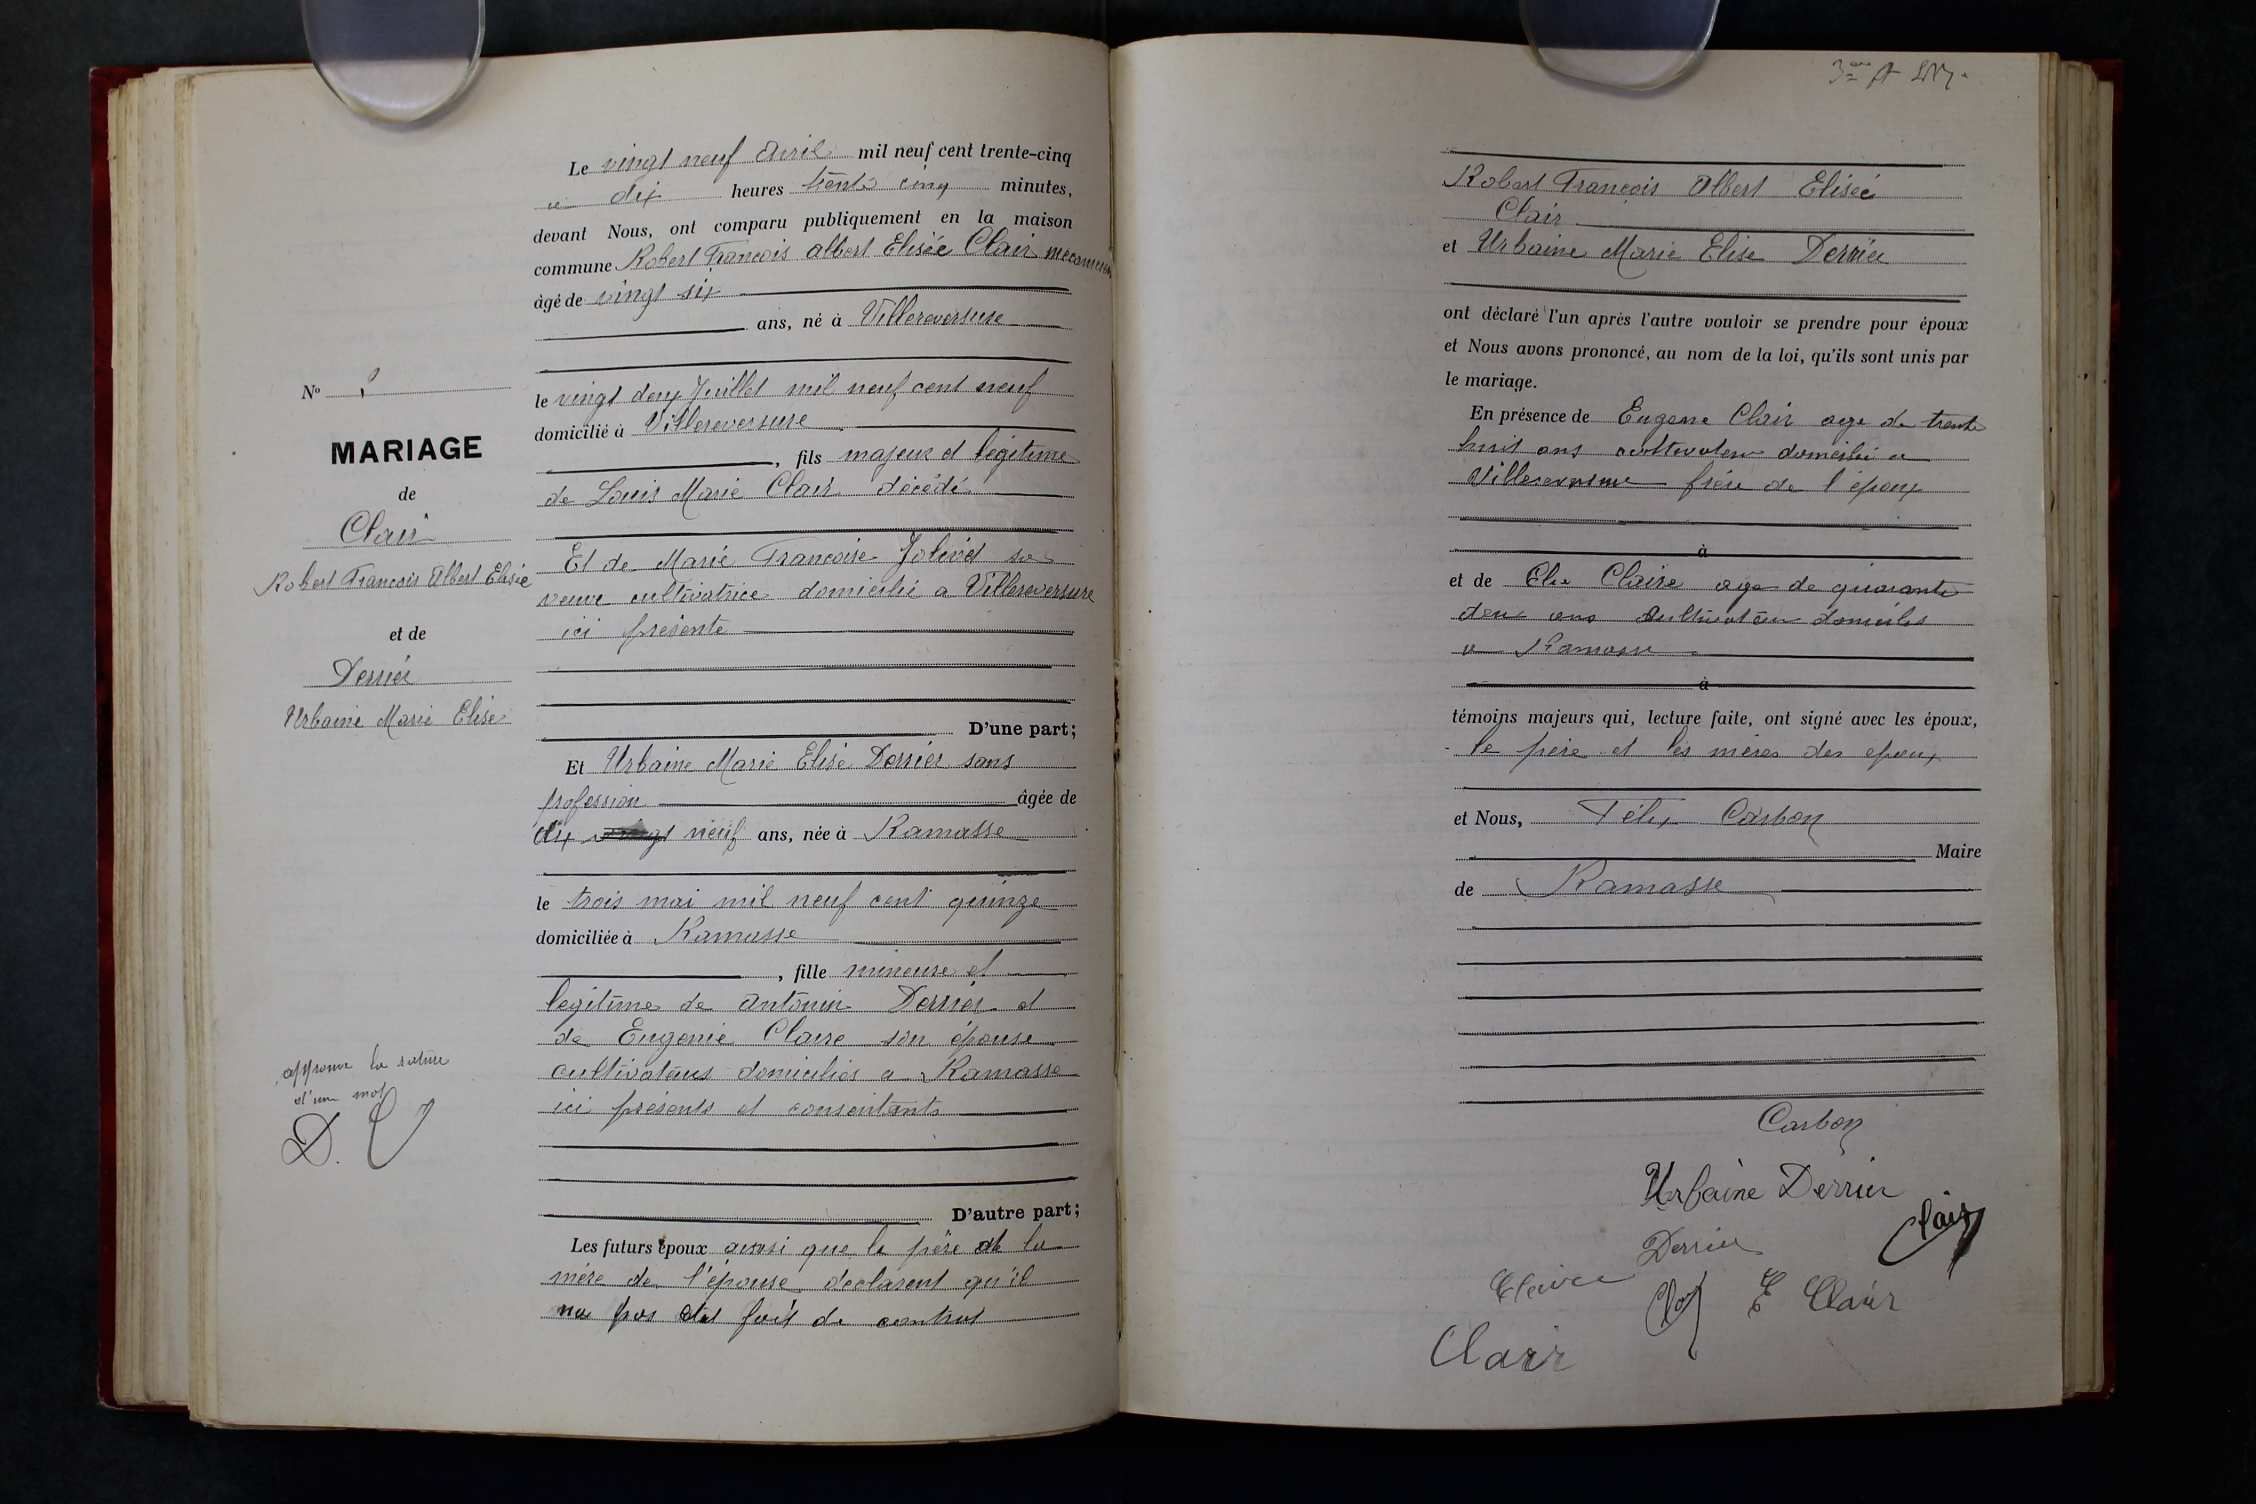 Le vingt neuf Avril mil neuf cent trente-cinq
a dix heures trente cinq minutes,
devant Nous, ont comparu publiquement en la maison
commune Robert François Albert Elisée Clair mecanicien
âgé de vingt six
ans, né à Villereversure
le vingt deux Juillet mil neuf cent neuf
domicilié à Villereversure
, fils majeur et légitime
de Louis Marie Clair décédé
Et de Marie Françoise Jolivet sa
veuve cultivatrice domicilié a Villereversure
ici présente
D'une part;
Et Urbaine Marie Elise Derrier sans
profession âgée de
dix vingt neuf ans, née à Ramasse
le trois mai mil neuf cent quinze
domiciliée à Ramasse
, fille mineure et
legitime de Antonin Derrier et
de Eugenie Claire son épouse
cultivateurs domiciliés a Ramasse
ici présents et consentants
D'autre part;
Les futurs époux ainsi que le père et la
mère de l'épouse déclarent qu'il
na pas été fait de contrat
No
MARIAGE
de
Clair
Robert François Albert Elisée
et de
Derrier
Urbaine Marie Elise
approuve la rature
d'un mot
D.
Robert François Albert Elisée
Clair
et Urbaine Marie Elise Derrier
ont déclaré l'un après l'autre vouloir se prendre pour époux
et Nous avons prononcé, au nom de la loi, qu'ils sont unis par
le mariage.
En présence de Eugene Clair age de trente
huit ans cultivateur domicilié a
Villereversure frère de l'époux
à
et de Elie Claire age de quarante
deux ans cultivateur domicilié
a Ramasse
à
témoins majeurs qui, lecture faite, ont signé avec les époux,
le père et les mères des epoux
et Nous, Félix Carbon
Maire
de Ramasse
Carbon
Urbaine Derrier
Clair
Derrier
Claire
E Clair
Clair